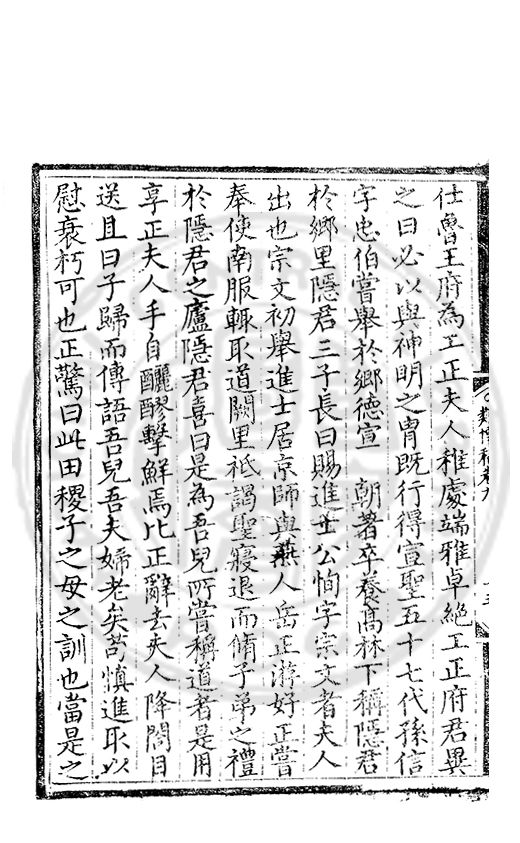 仕魯王府為工正夫人稚處端雅卓絕工正府君異
之曰必以與神明之胄既行得宣聖五十七代孫信
字忠伯嘗舉於鄉德宣一朝著卒養髙林下稱隱君
於鄉里隱君三子長曰賜進士公恂字宗文者夫人
出也宗文初舉進士居京師與燕人岳正游好正嘗
奉使南服輙取道闕里祗謁聖寢退而脩子弟之禮
於隱君之廬隱君喜曰是為吾兒所嘗稱道者是用
享正夫人手自釃醪擊鮮焉比正辭去夫人降閤目
送且曰子歸而傳語吾兒吾夫婦老矣苟慎進取以
慰衰朽可也正驚曰此田稷子之母之訓也當是之
類博稿卷九